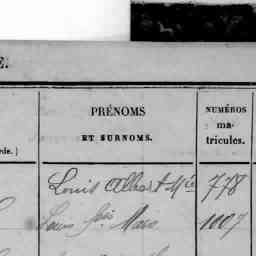 E.
PRÉNOMS
ET SURNOMS.
NUMÉROS
ma-
tricules.
rde.)
Louis Albert Mie 778
Louis Marc 1007